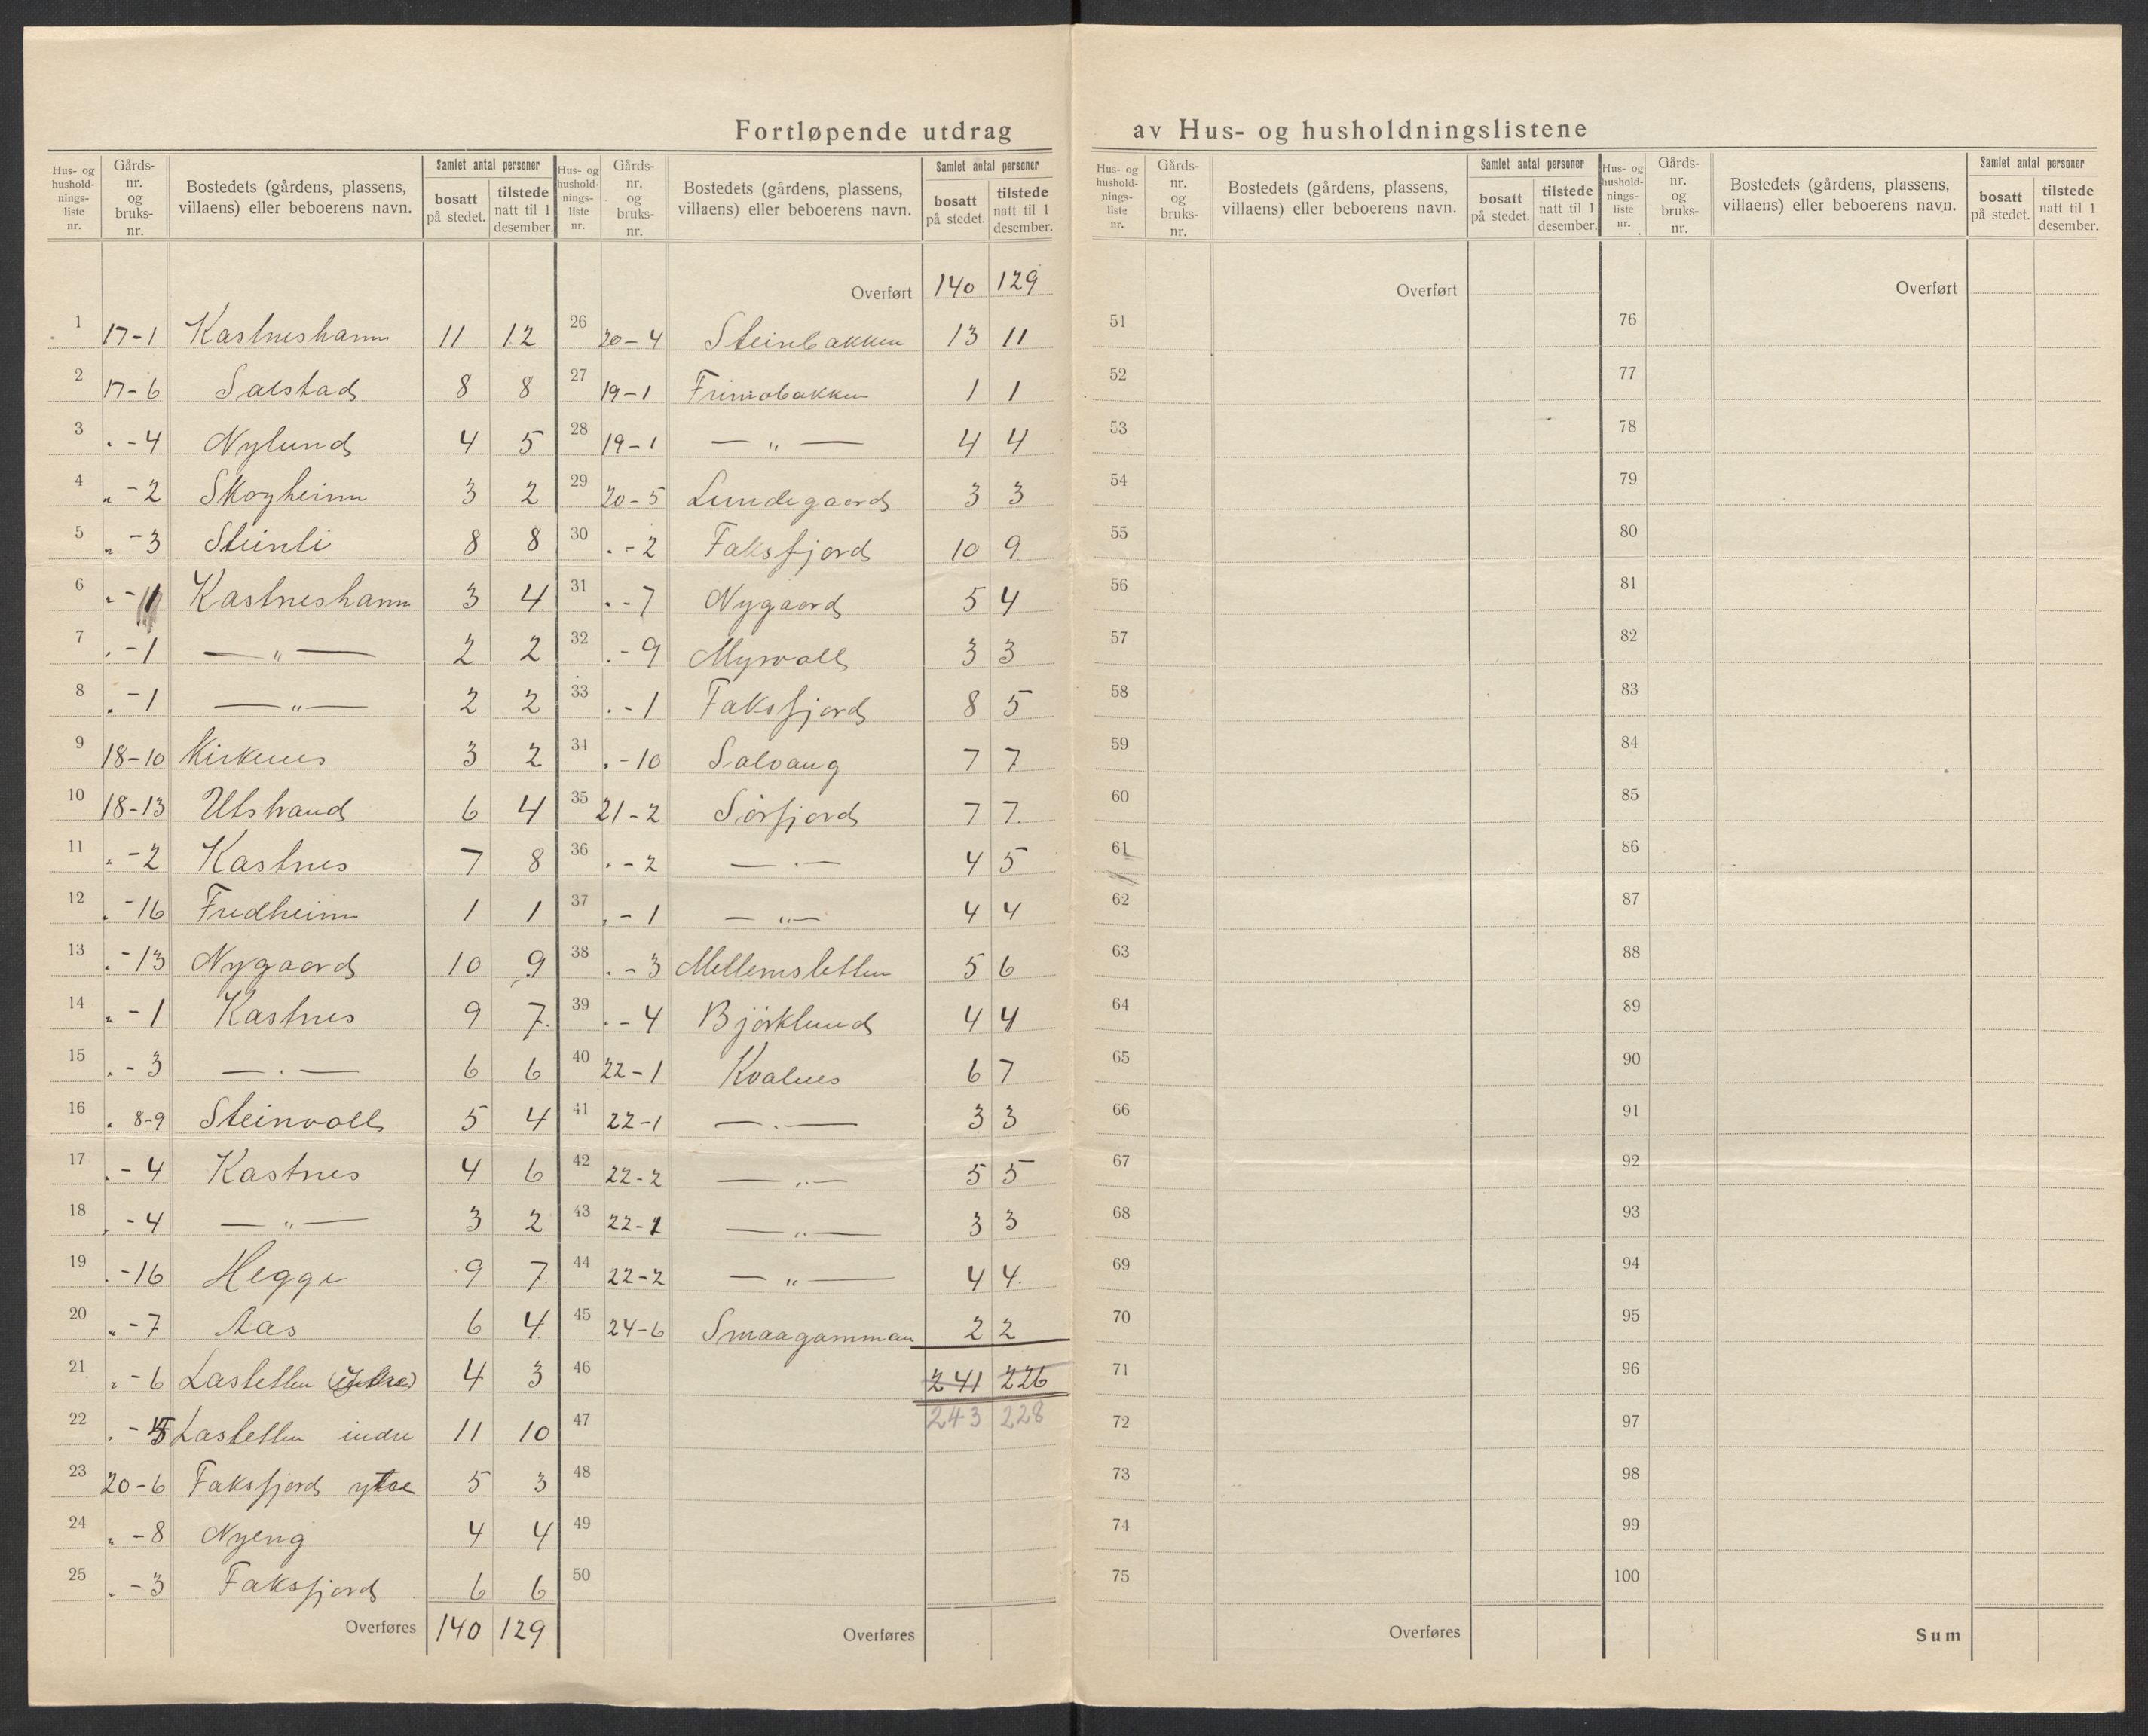 Fortløpende utdrag av Hus- og husholdningslistene
Hus- og hushold- nings- liste nr. Gårds- nr. og bruks- nr. Bostedets (gårdens, plassens, villaens) eller beboerens navn. Samlet antal personer bosatt på stedet. tilstede natt til 1 desember.
1 17-1 Kastneshamn 11 12
2 17-6 Salstad 8 8
3 . -4 Nylund 4 5
4 " -2 Skogheim 3 2
5 " -3 Steinli 8 8
6 " - Kastneshamn 3 4
7 . -1 — " — 2 2
8 . -1 — " — 2 2
9 18-10 Kirkenes 3 2
10 18-13 Utstrand 6 4
11 . -2 Kastnes 7 8
12 . -16 Fredheim 1 1
13 . -13 Nygaard 10 9
14 " -1 Kastnes 9 7
15 . -3 — . — 6 6
16 . 8-9 Steinvoll 5 4
17 . -4 Kastnes 4 6
18 . -4 — " — 3 2
19 . -16 Hegge 9 7
20 " -7 Aas 6 4
21 " -6 Lasletten 4 3
22 . - Lasletten indre 11 10
23 20-6 Faksfjord ytre 5 3
24 " -8 Nyeng 4 4
25 . -3 Faksfjord 6 6
Overføres 140 129
Hus- og hushold- nings- liste nr. Gårds- nr. og bruks- nr. Bostedets (gårdens, plassens, villaens) eller beboerens navn. Samlet antal personer bosatt på stedet. tilstede natt til 1 desember.
Overført 140 129
26 20-4 Steinbakken 13 11
27 19-1 1 1
28 19-1 — " — 4 4
29 20-5 Lundegaard 3 3
30 . -2 Faksfjord 10 9
31 . -7 Nygaard 5 4
32 . -9 Myrvoll 3 3
33 . -1 Faksfjord 8 5
34 . -10 Salvang 7 7
35 21-2 Sørfjord 7 7
36 . -2 — . — 4 5
37 . -1 — " — 4 4
38 . -3 Mellemsletten 5 6
39 . -4 Bjørklund 4 4
40 22-1 Kvalnes 6 7
41 22-1 — . — 3 3
42 22-2 — " — 5 5
43 22-1 — " — 3 3
44 22-2 — " — 4 4
45 24-6 Smaagamman 2 2
46 241 226
47 243 228
48
49
50
Overføres
Hus- og hushold- nings- liste nr. Gårds- nr. og bruks- nr. Bostedets (gårdens, plassens, villaens) eller beboerens navn. Samlet antal personer bosatt på stedet. tilstede natt til 1 desember.
Overført
51
52
53
54
55
56
57
58
59
60
61
62
63
64
65
66
67
68
69
70
71
72
73
74
75
Overføres
Hus- og hushold- nings- liste nr. Gårds- nr. og bruks- nr. Bostedets (gårdens, plassens, villaens) eller beboerens navn. Samlet antal personer bosatt på stedet. tilstede natt til 1 desember.
Overført
76
77
78
79
80
81
82
83
84
85
86
87
88
89
90
91
92
93
94
95
96
97
98
99
100
Sum